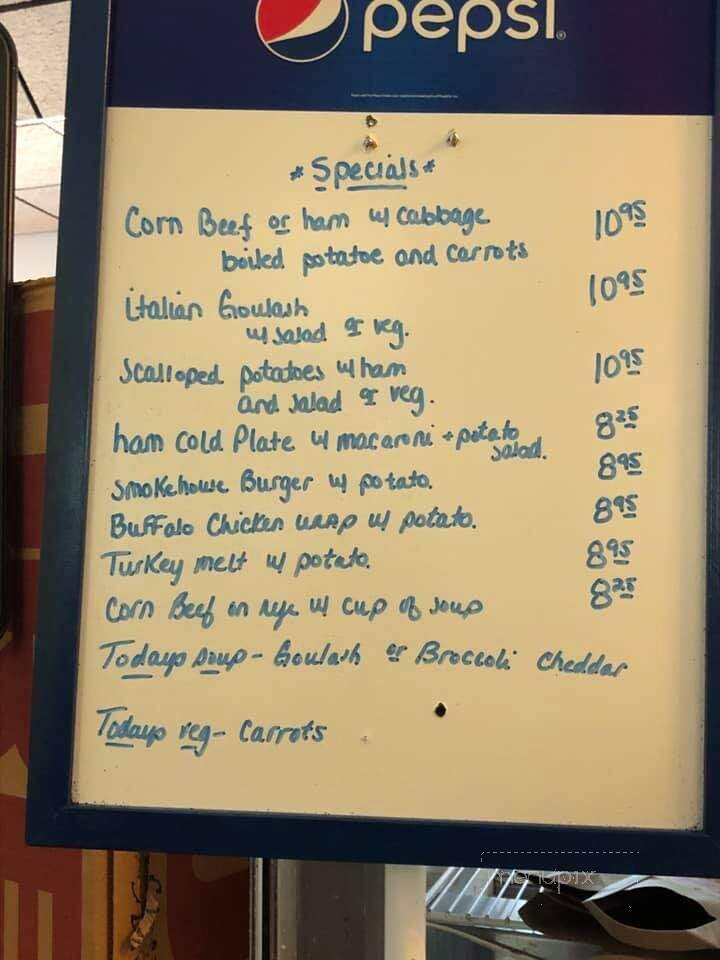 pepsi
*Specials*
Corn Beef or ham w/ cabbage 10 95
boiled potatoe and carrots
italian Goulash 10 95
w/ salad or veg.
Scalloped potatoes w/ ham 10 95
and salad or veg.
ham cold Plate w/ macaroni + potato salad. 8 25
Smokehouse Burger w/ potato. 8 95
Buffalo Chicken wrap w/ potato. 8 95
Turkey melt w/ potato. 8 95
Corn Beef on rye w/ cup of soup 8 25
Todays soup - Goulash or Broccoli Cheddar
Todays veg - Carrots
menupix